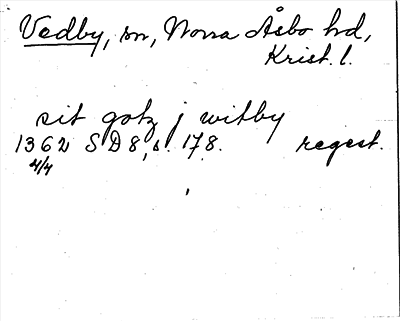 Vedby, sn, Norra Åsbo hd,
Krist. l.
sit gotz j witby
1362 SD8, s. 178. regest.
4/4